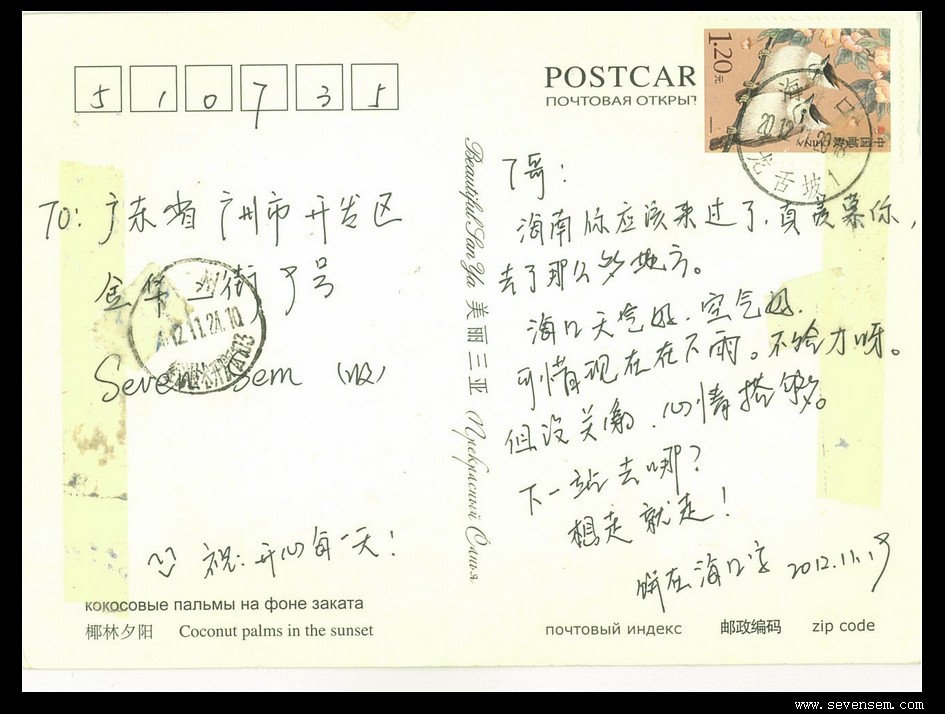 5 1 0 7 3 5
POSTCAR
ПОЧТОВАЯ ОТКРЫТ
1.20元
中国邮政
海口
20 12
龙舌坡1
TO: 广东省广州市开发区
金华二街 9号
Sevensem (收)
12.11.24.10
祝:开心每一天!
кокосовые пальмы на фоне заката
椰林夕阳 Coconut palms in the sunset
Beautiful San Ya 美丽三亚 Прекрасный Санья
丁哥:
海南你应该来过了,真羡慕你,
去了那么多地方。
海口天气好.空气好.
可惜现在在下雨。不给力呀。
但没关系,心情搭够。
下一站去哪?
想走就走!
饼在海口字 2012.11.19
почтовый индекс 邮政编码 zip code
www.sevensem.com